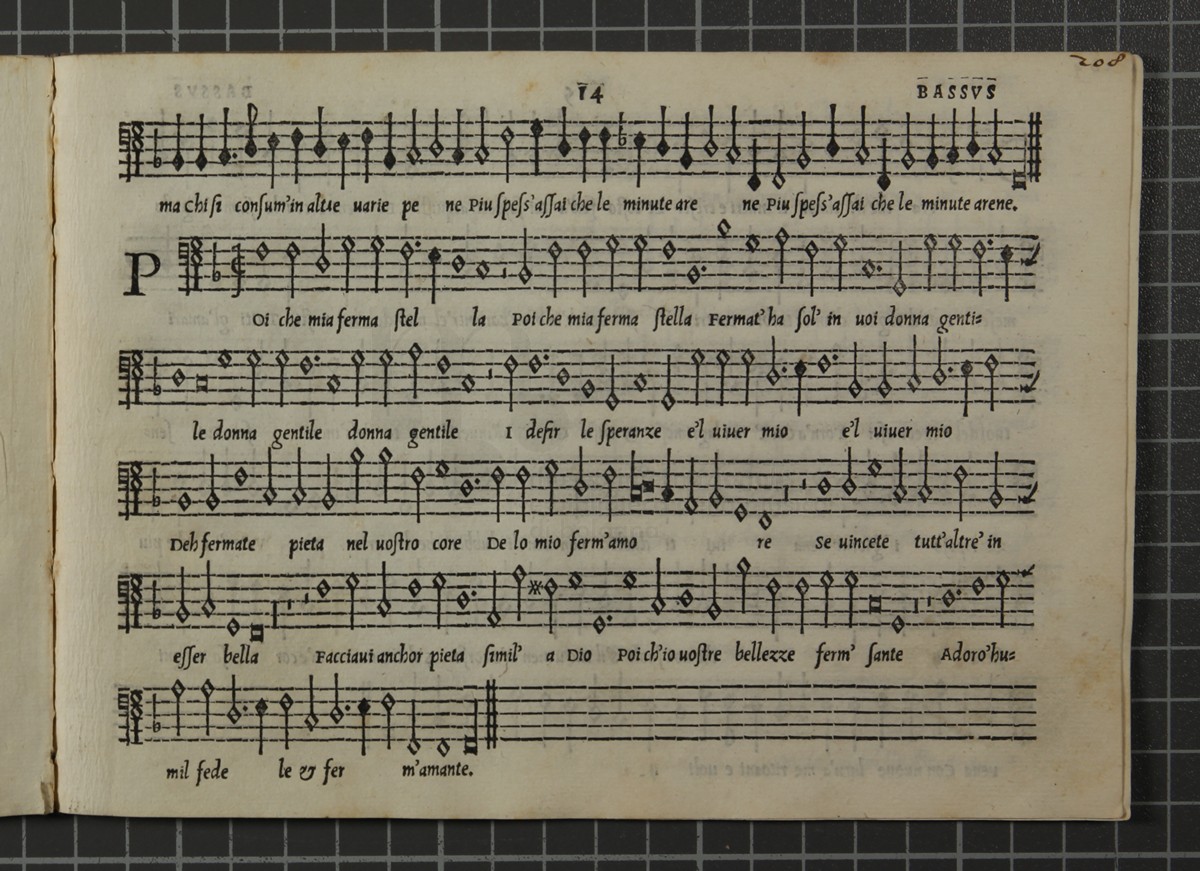 208
14 BASSVS
ma chi si consum'in altre uarie pe ne Piu spess'assai che le minute are ne Piu spess'assai che le minute arene.
P
Oi che mia ferma stel la Poi che mia ferma stella Fermat' ha sol' in uoi donna genti=
le donna gentile donna gentile I desir le speranze e'l uiuer mio e'l uiuer mio
Deh fermate pieta nel uostro core De lo mio ferm'amo re Se uincete tutt'altre' in
esser bella Facciaui anchor pieta simil' a Dio Poi ch'io uostre bellezze ferm' sante Adoro'hu=
mil fede le & fer m'amante.